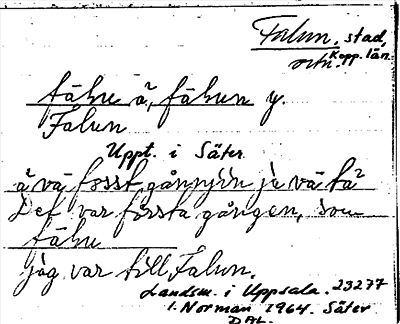 Falun, stad,
Kopp. län.
ortn.
fâhu â, fâhun y.
Falun
Uppt. i Säter
å vâ fosst gånnjin ja va ta
Det var första gången, som
fâhu
jag var till Falun.
Landsm. i Uppsala. 23277
I. Norman 1964. Säter
DAL.